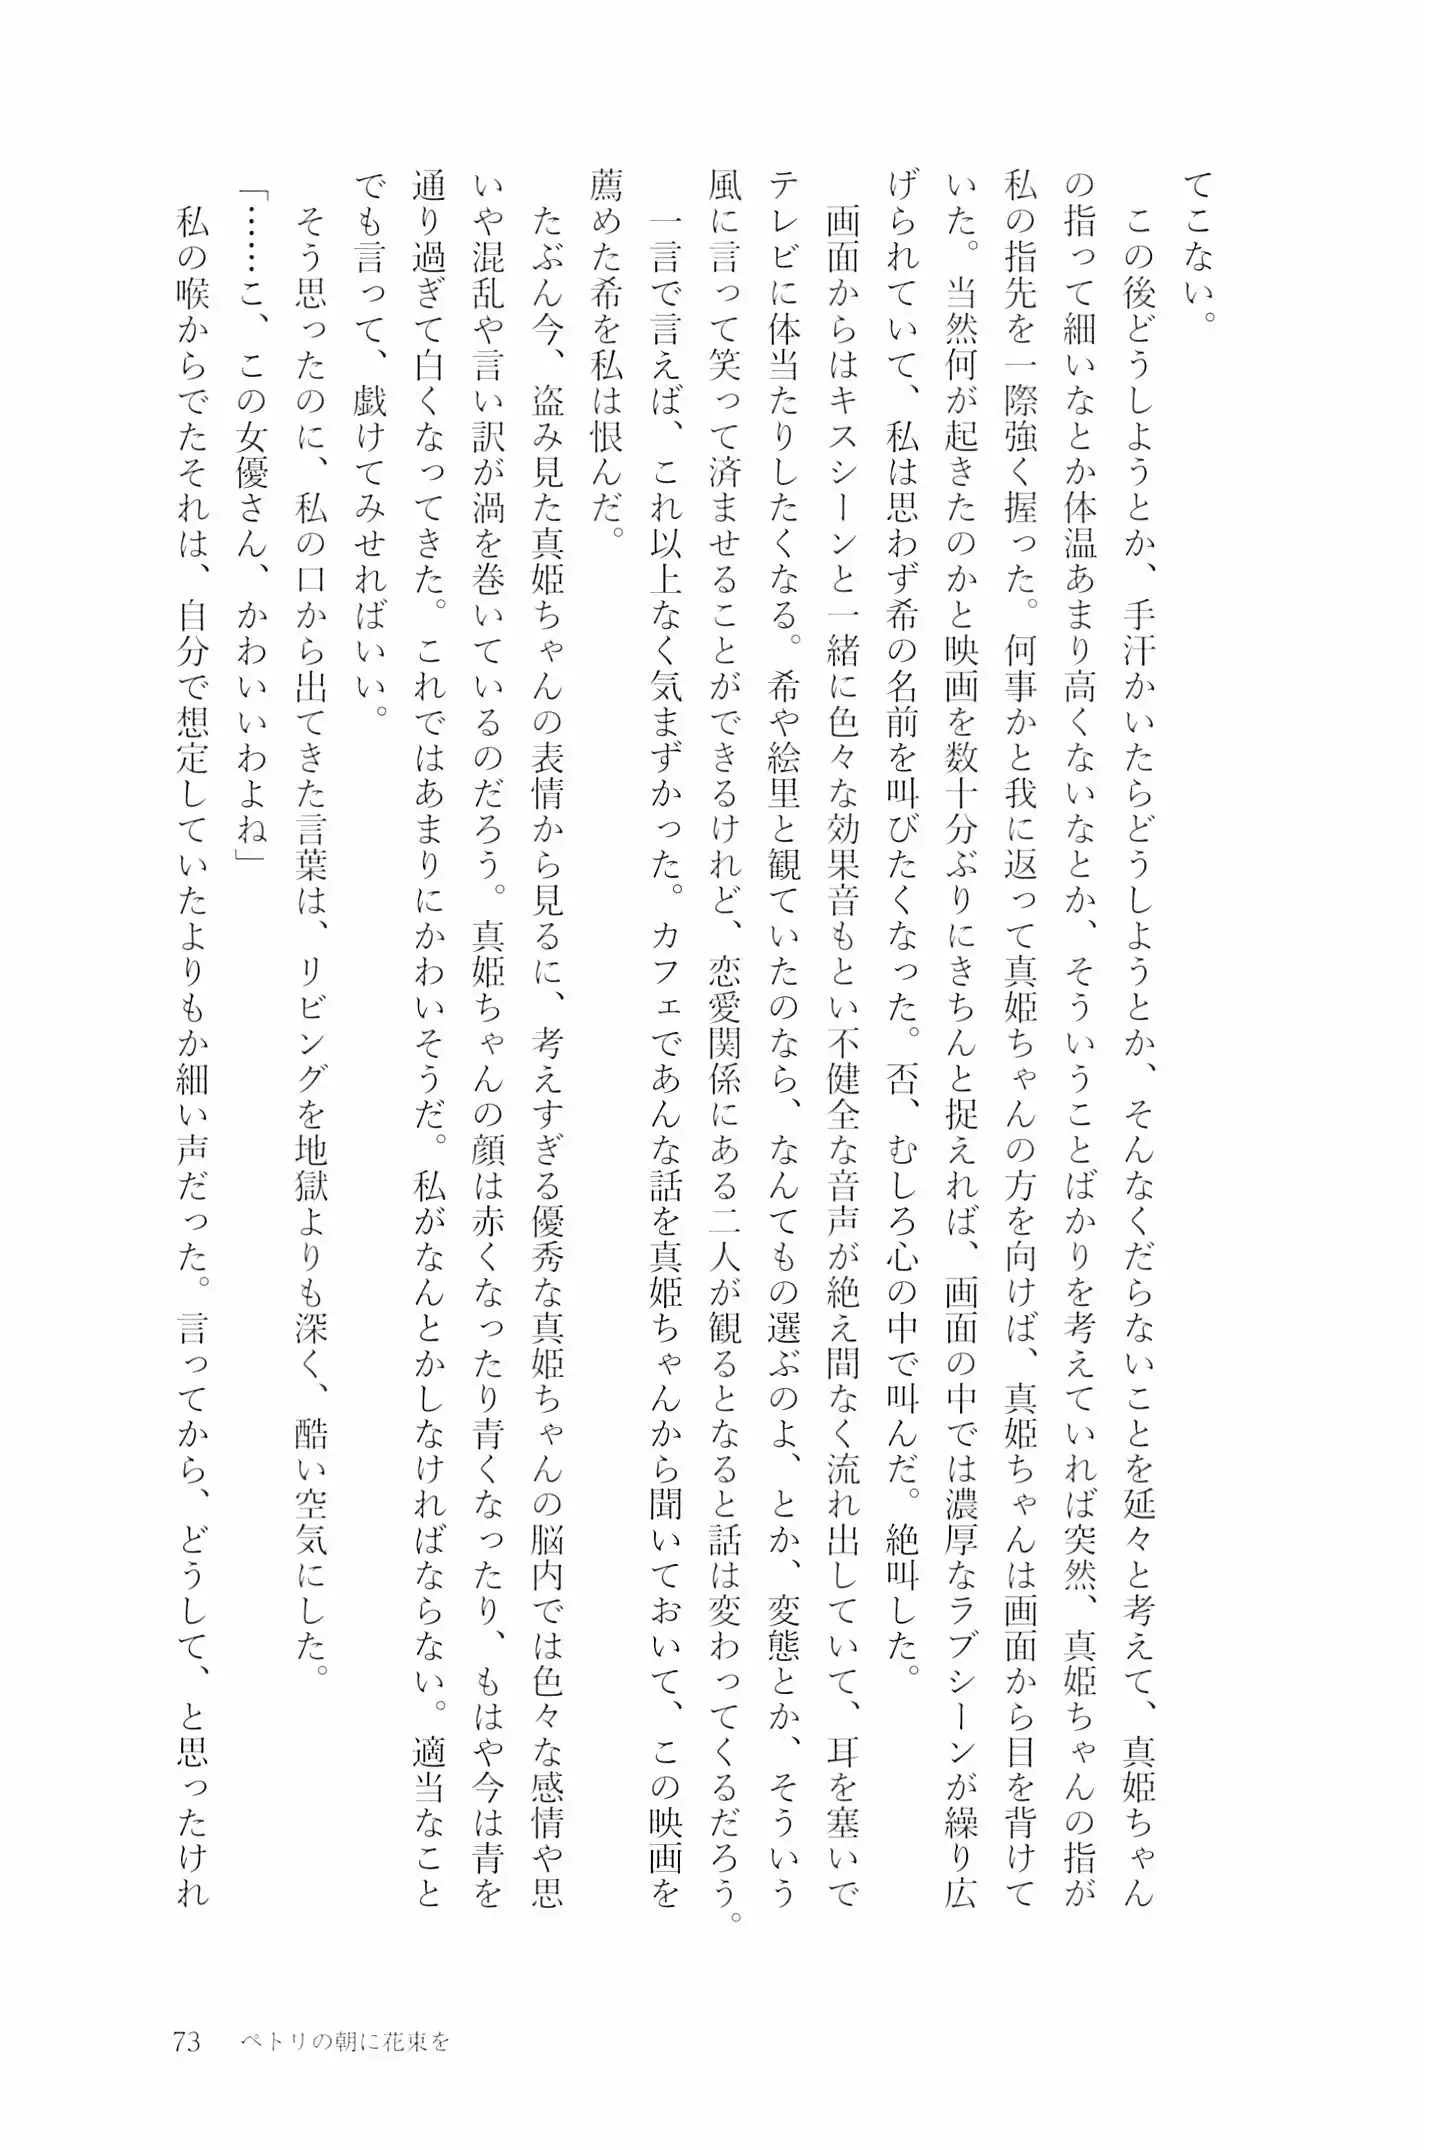 てこない。
　この後どうしようとか、手汗かいたらどうしようとか、そんなくだらないことを延々と考えて、真姫ちゃん
の指って細いなとか体温あまり高くないなとか、そういうことばかりを考えていれば突然、真姫ちゃんの指が
私の指先を一際強く握った。何事かと我に返って真姫ちゃんの方を向けば、真姫ちゃんは画面から目を背けて
いた。当然何が起きたのかと映画を数十分ぶりにきちんと捉えれば、画面の中では濃厚なラブシーンが繰り広
げられていて、私は思わず希の名前を叫びたくなった。否、むしろ心の中で叫んだ。絶叫した。
　画面からはキスシーンと一緒に色々な効果音もとい不健全な音声が絶え間なく流れ出していて、耳を塞いで
テレビに体当たりしたくなる。希や絵里と観ていたのなら、なんてもの選ぶのよ、とか、変態とか、そういう
風に言って笑って済ませることができるけれど、恋愛関係にある二人が観るとなると話は変わってくるだろう。
　一言で言えば、これ以上なく気まずかった。カフェであんな話を真姫ちゃんから聞いておいて、この映画を
薦めた希を私は恨んだ。
　たぶん今、盗み見た真姫ちゃんの表情から見るに、考えすぎる優秀な真姫ちゃんの脳内では色々な感情や思
いや混乱や言い訳が渦を巻いているのだろう。真姫ちゃんの顔は赤くなったり青くなったり、もはや今は青を
通り過ぎて白くなってきた。これではあまりにかわいそうだ。私がなんとかしなければならない。適当なこと
でも言って、戯けてみせればいい。
　そう思ったのに、私の口から出てきた言葉は、リビングを地獄よりも深く、酷い空気にした。
「……こ、この女優さん、かわいいわよね」
　私の喉からでたそれは、自分で想定していたよりもか細い声だった。言ってから、どうして、と思ったけれ
73　ペトリの朝に花束を